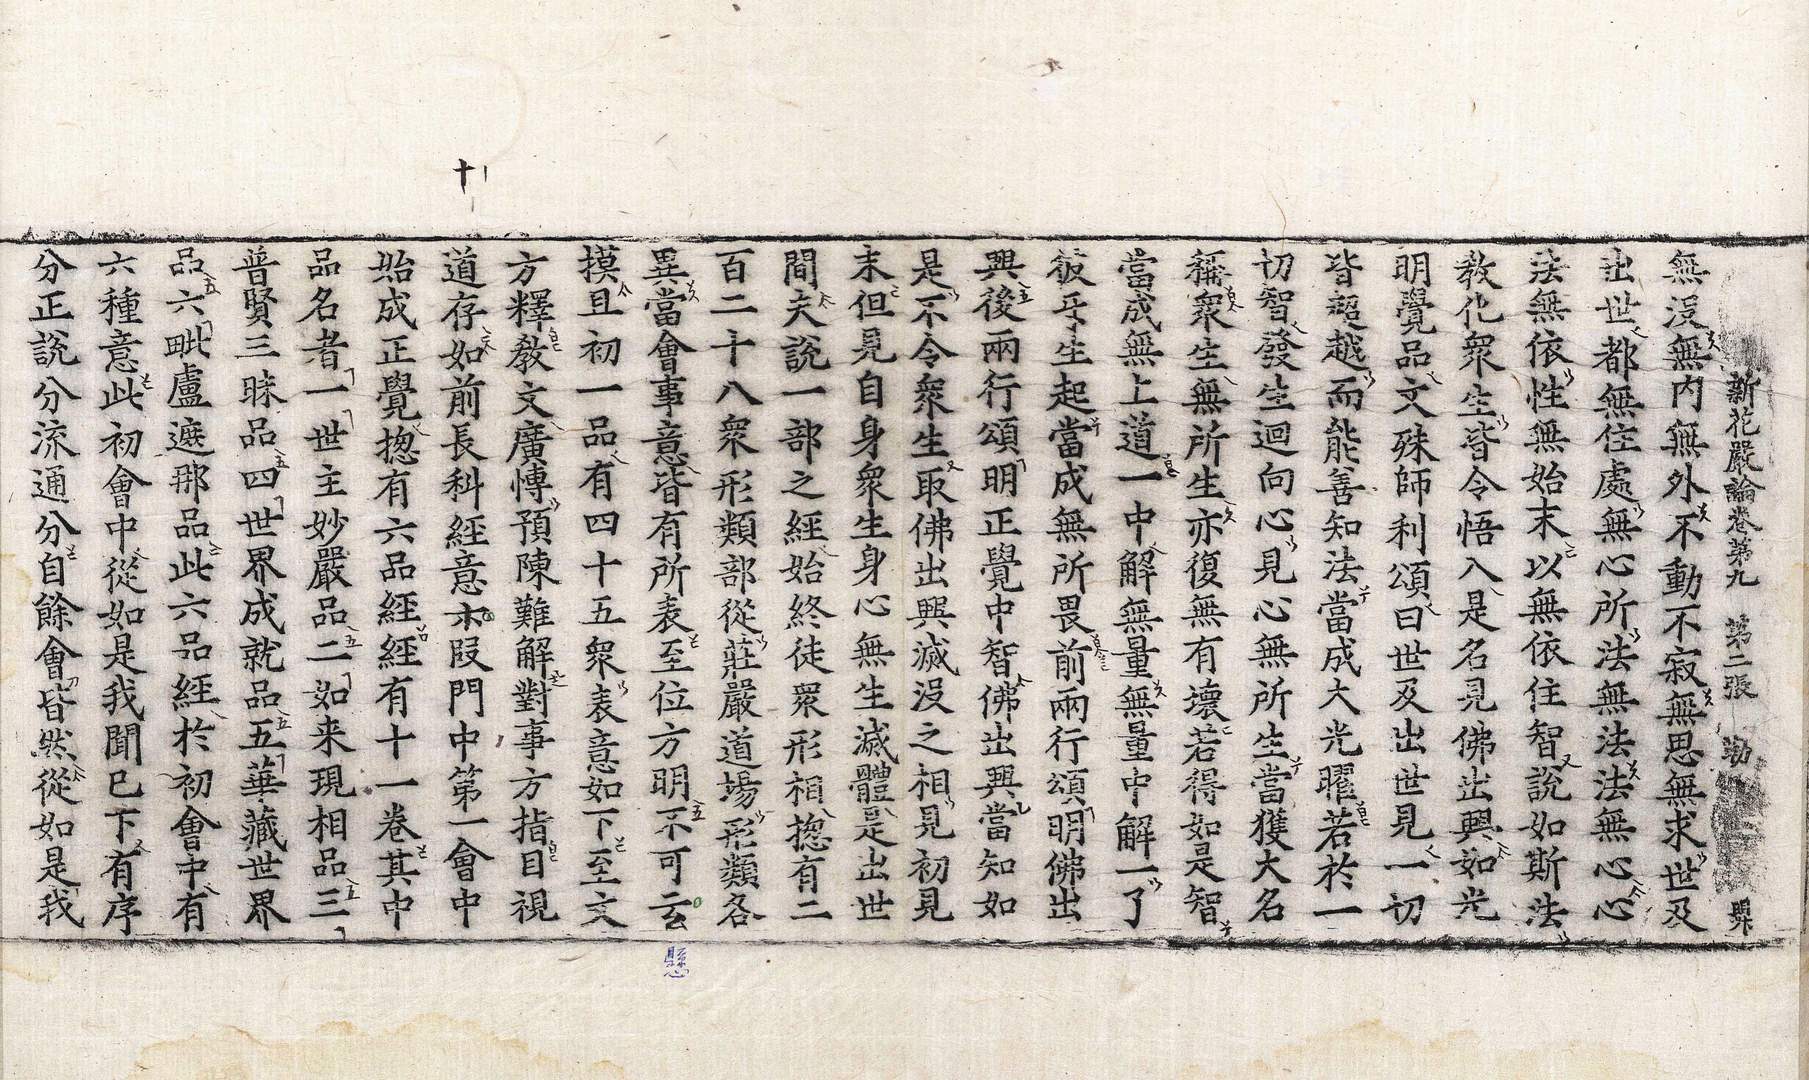 新花嚴論卷第九 第二張 勒 昇
無沒無內無外不動不寂無思無求世及
出世都無住處無心所法無法法無心心
法無依性無始末以無依住智說如斯法
教化衆生皆令悟入是名見佛出興如光
明覺品文殊師利頌曰世及出世見一切
皆超越而能善知法當成大光曜若於一
切智發生迴向心見心無所生當獲大名
稱衆生無所生亦復無有壞若得如是智
當成無上道一中解無量無量中解一了
彼乎生起當成無所畏前兩行頌明佛出
興後兩行頌明正覺中智佛出興當知如
是不令衆生取佛出興滅沒之相見初見
末但見自身衆生身心無生滅體是出世
間夫說一部之經始終徒衆形相揔有二
百二十八衆形類部從莊嚴道場形類各
異當會事意皆有所表至位方明不可玄
摸且初一品有四十五衆表意如下至文
方釋教文廣愽預陳難解對事方指目視
道存如前長科經意十叚門中第一會中
始成正覺揔有六品經經有十一卷其中
品名者一世主妙嚴品二如来現相品三
普賢三昧品四世界成就品五華藏世界
品六毗盧遮那品此六品經於初會中有
六種意此初會中從如是我聞已下有序
分正說分流通分自餘會皆然從如是我
十
懸